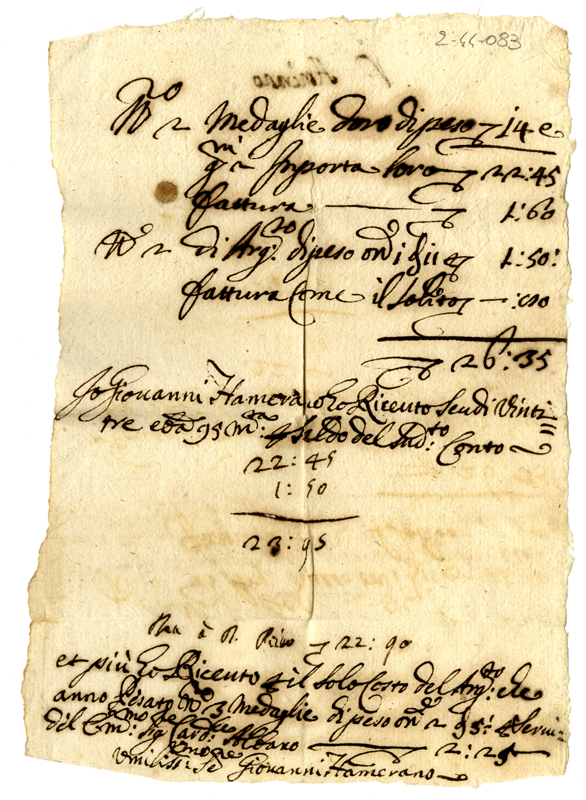 2-44-083
No 2 Medaglie doro di peso 14 e
qm 2 Importa loro 22:45
fattura 1:60
No 2 di Argto di peso 1:50:
fattura Come il Solito :80
26:35
Io Giovanni Hamerano ho Riceuto Scudi Vinti=
tre e ba 95 mta: Saldo del Sudto: Conto
22:45
1:50
23:95
22:90
et più ho Riceuto il Solo Costo del Argto: che
anno Pesato No 3 Medaglie di peso ond 2 95: Servi=
Sig Card Albano 2:25
Umiliss: Se Giovanni Hamerano